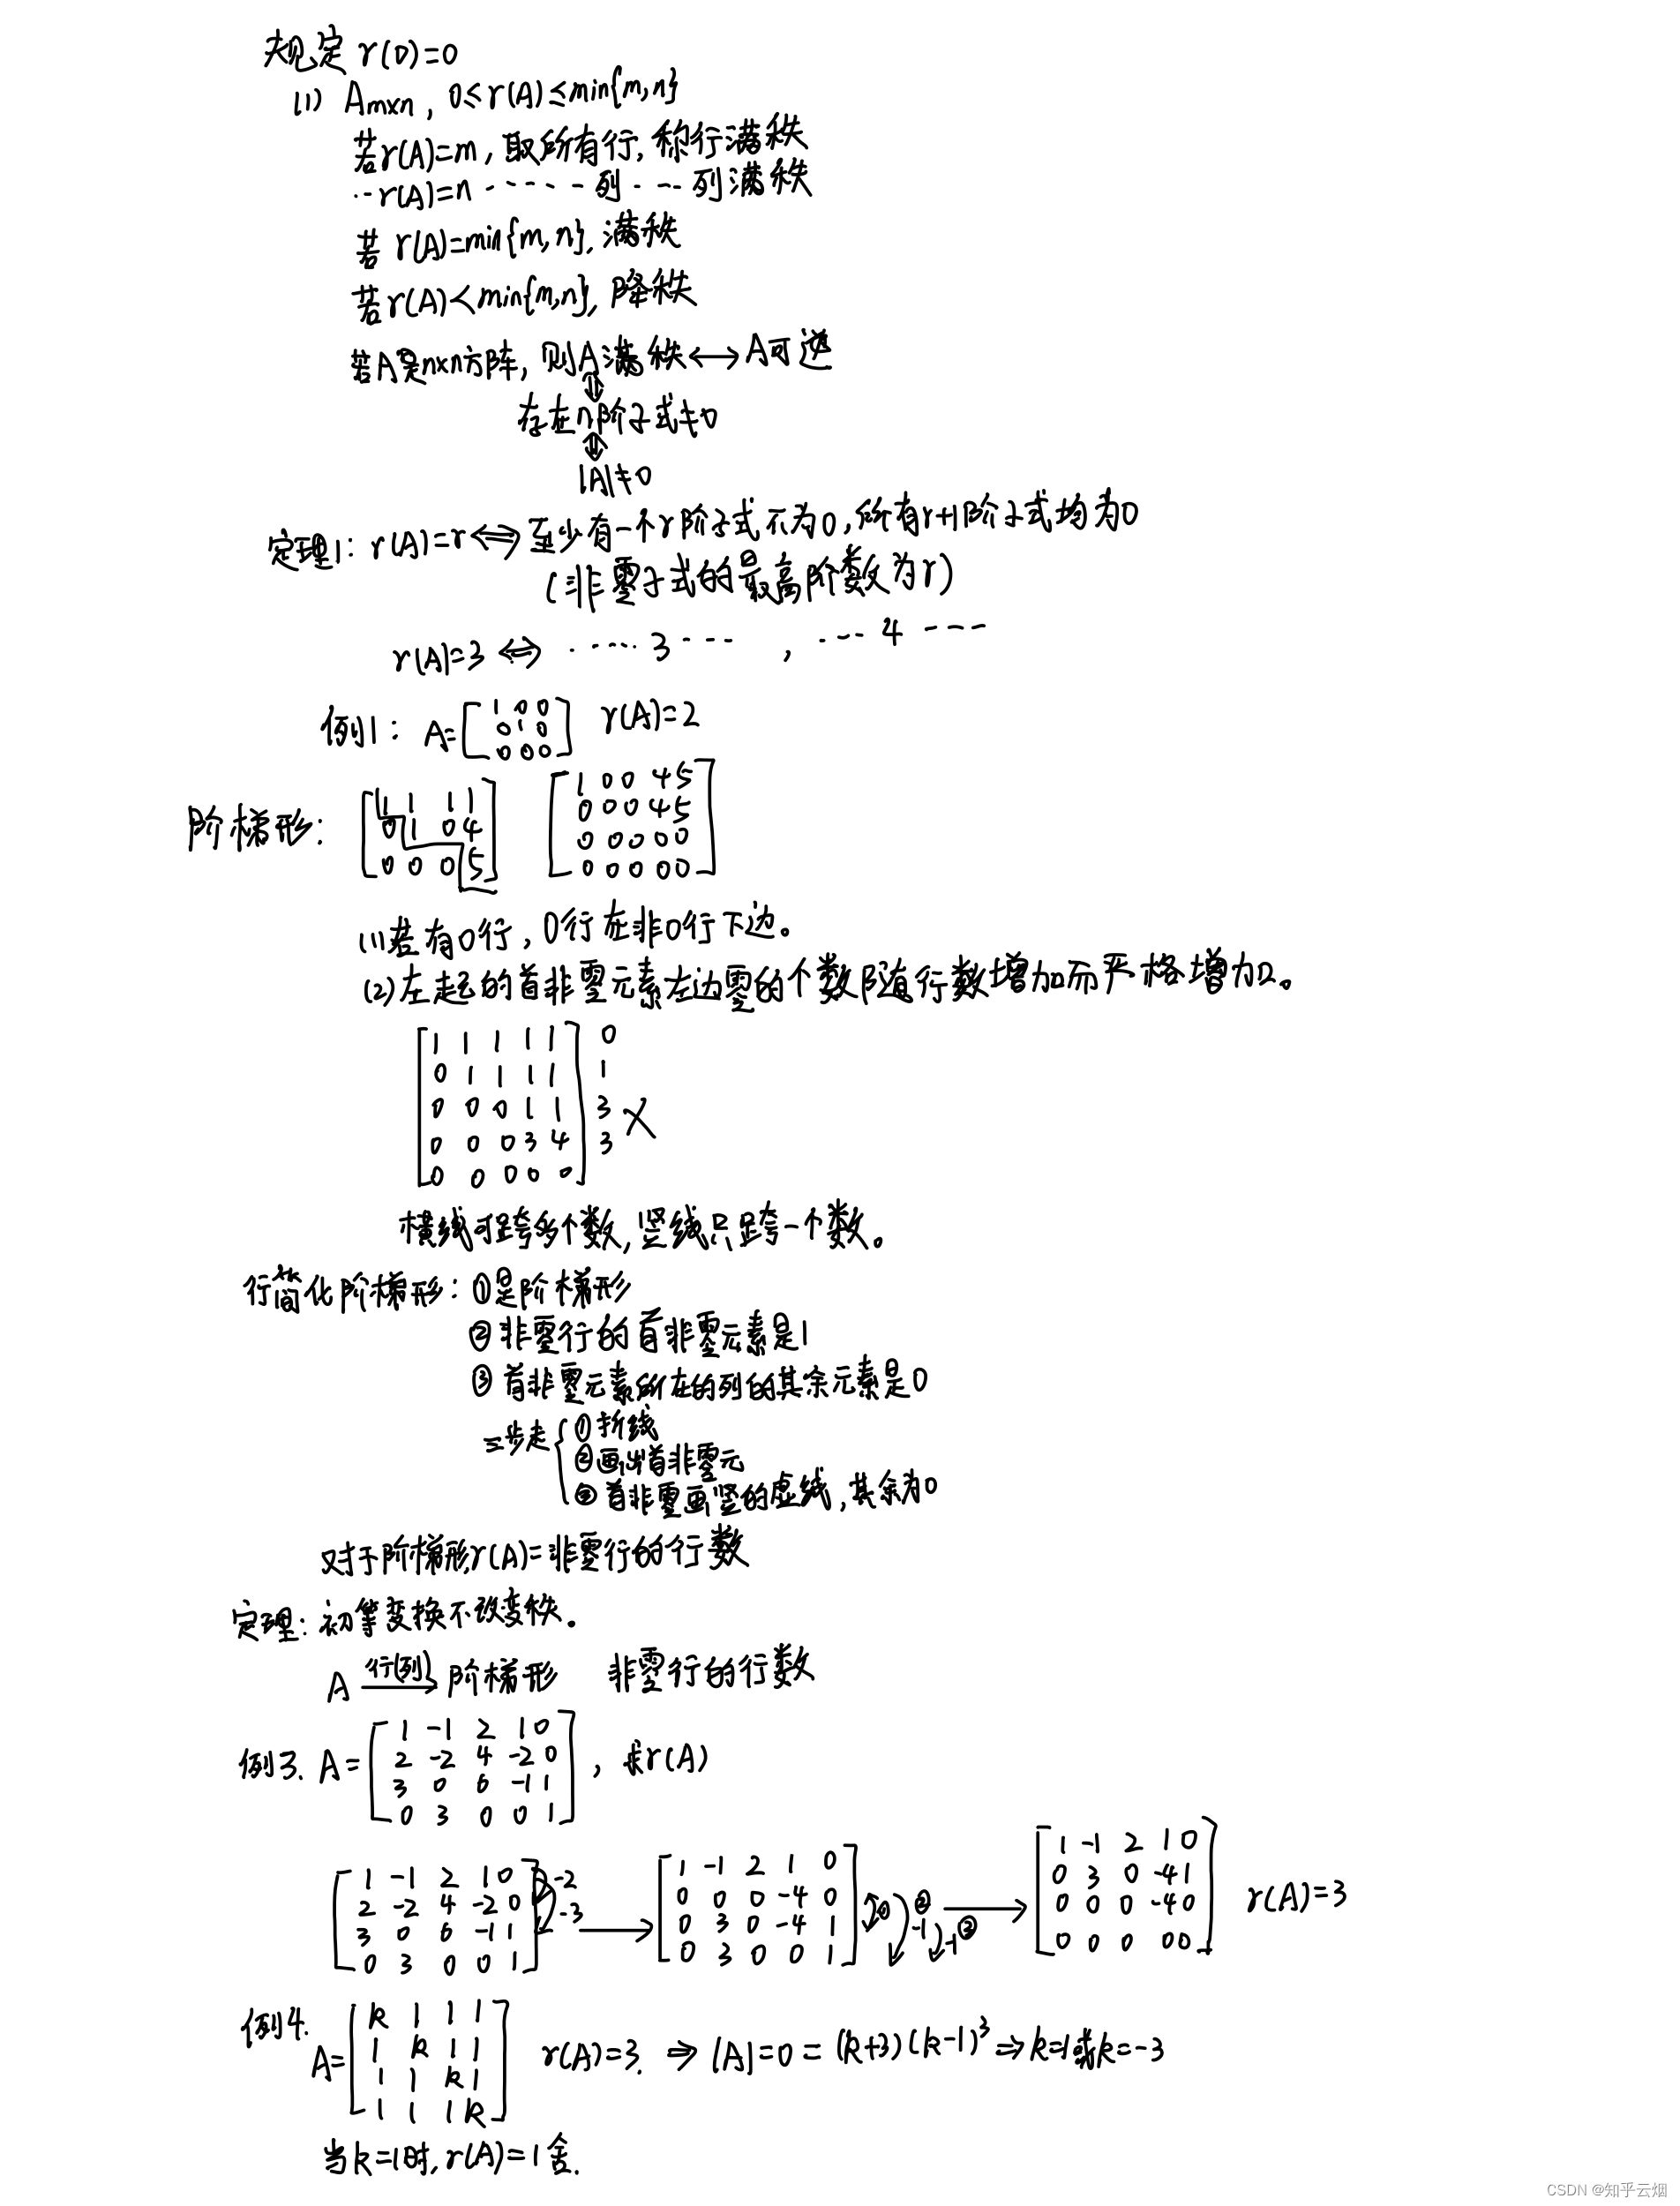 规定 r(0)=0
(1) Aₘₓₙ, 0≤r(A)≤min{m,n}
若r(A)=m, 取所有行, 称行满秩
‥r(A)=n ‥‥‥列‥‥列满秩
若 r(A)=min{m,n}, 满秩
若r(A)<min{m,n}, 降秩
若A是n×n方阵, 则A满秩↔A可逆
⇕
存在n阶子式≠0
⇕
|A|≠0
定理1: r(A)=r⇔至少有一个r阶子式不为0,所有r+1阶子式均为0
(非零子式的最高阶数为r)
r(A)=3 ⇔ ‥‥‥3‥‥ , ‥‥4‥‥
例1: A=[1 0 0; 0 1 0; 0 0 0] r(A)=2
阶梯形: [1 1 1 1; 0 1 0 4; 0 0 0 5] [1 0 0 4 5; 0 0 0 4 5; 0 0 0 0 0; 0 0 0 0 0]
(1)若有0行, 0行在非0行下边。
(2)左起的首非零元素左边零的个数随行数增加而严格增加。
1 1 1 1 1 0
0 1 1 1 1 1
0 0 0 1 1 3 ×
0 0 0 3 4 3
0 0 0 0 0
横线可跨多个数, 竖线只跨一个数。
行简化阶梯形: ①是阶梯形
②非零行的首非零元素是1
③首非零元素所在的列的其余元素是0
三步走 ①折线
②画出首非零元
③首非零画竖的虚线,其余为0
对于阶梯形,r(A)=非零行的行数
定理: 初等变换不改变秩。
A 行(列)→ 阶梯形 非零行的行数
例3. A=[1 -1 2 1 0; 2 -2 4 -2 0; 3 0 6 -1 1; 0 3 0 0 1], 求r(A)
[1 -1 2 1 0; 2 -2 4 -2 0; 3 0 6 -1 1; 0 3 0 0 1] -2 -3 → [1 -1 2 1 0; 0 0 0 -4 0; 0 3 0 -4 1; 0 3 0 0 1] ① ② -1 -1 ③ → [1 -1 2 1 0; 0 3 0 -4 1; 0 0 0 -4 0; 0 0 0 0 0] r(A)=3
例4. A=[k 1 1 1; 1 k 1 1; 1 1 k 1; 1 1 1 k] r(A)=3. ⇒ |A|=0=(k+3)(k-1)³⇒k=1或k=-3
当k=1时, r(A)=1舍.
CSDN @知乎云烟